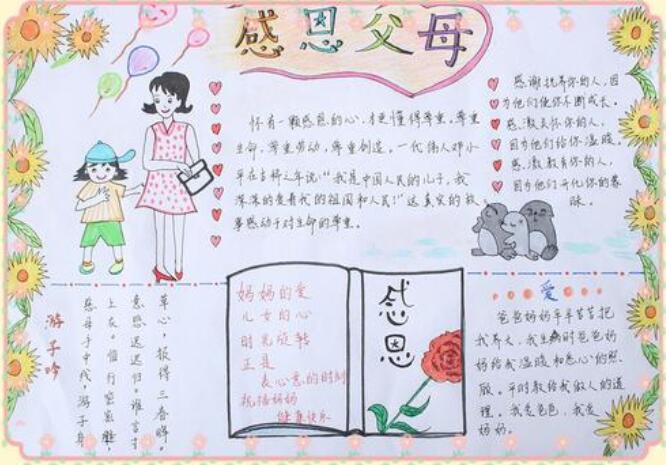 感恩父母
怀有一颗感恩的心,才更懂得尊重。尊重
生命,尊重劳动,尊重创造。一代伟人邓小
平在古稀之年说:“我是中国人民的儿子,我
深深的爱着我的祖国和人民!”这真实的故
事感动于对生命的尊重。
感谢抚养你的人,因
为他们使你不断成长。
感激关怀你的人,
因为他们给你温暖。
感激教育你的人,
因为他们开化你的蒙
昧。
游子吟
慈母手中线,游子身
上衣。临行密密缝,
意恐迟迟归。谁言寸
草心,报得三春晖。
妈妈的爱
儿女的心
时光旋转
正是
表心意的时刻
祝福妈妈
健康快乐
感恩
爱
爸爸妈妈辛辛苦苦把
我养大,我生病时爸爸妈
妈给我温暖和悉心的照
服。平时教给我做人的道
理。我爱爸爸,我爱
妈妈。